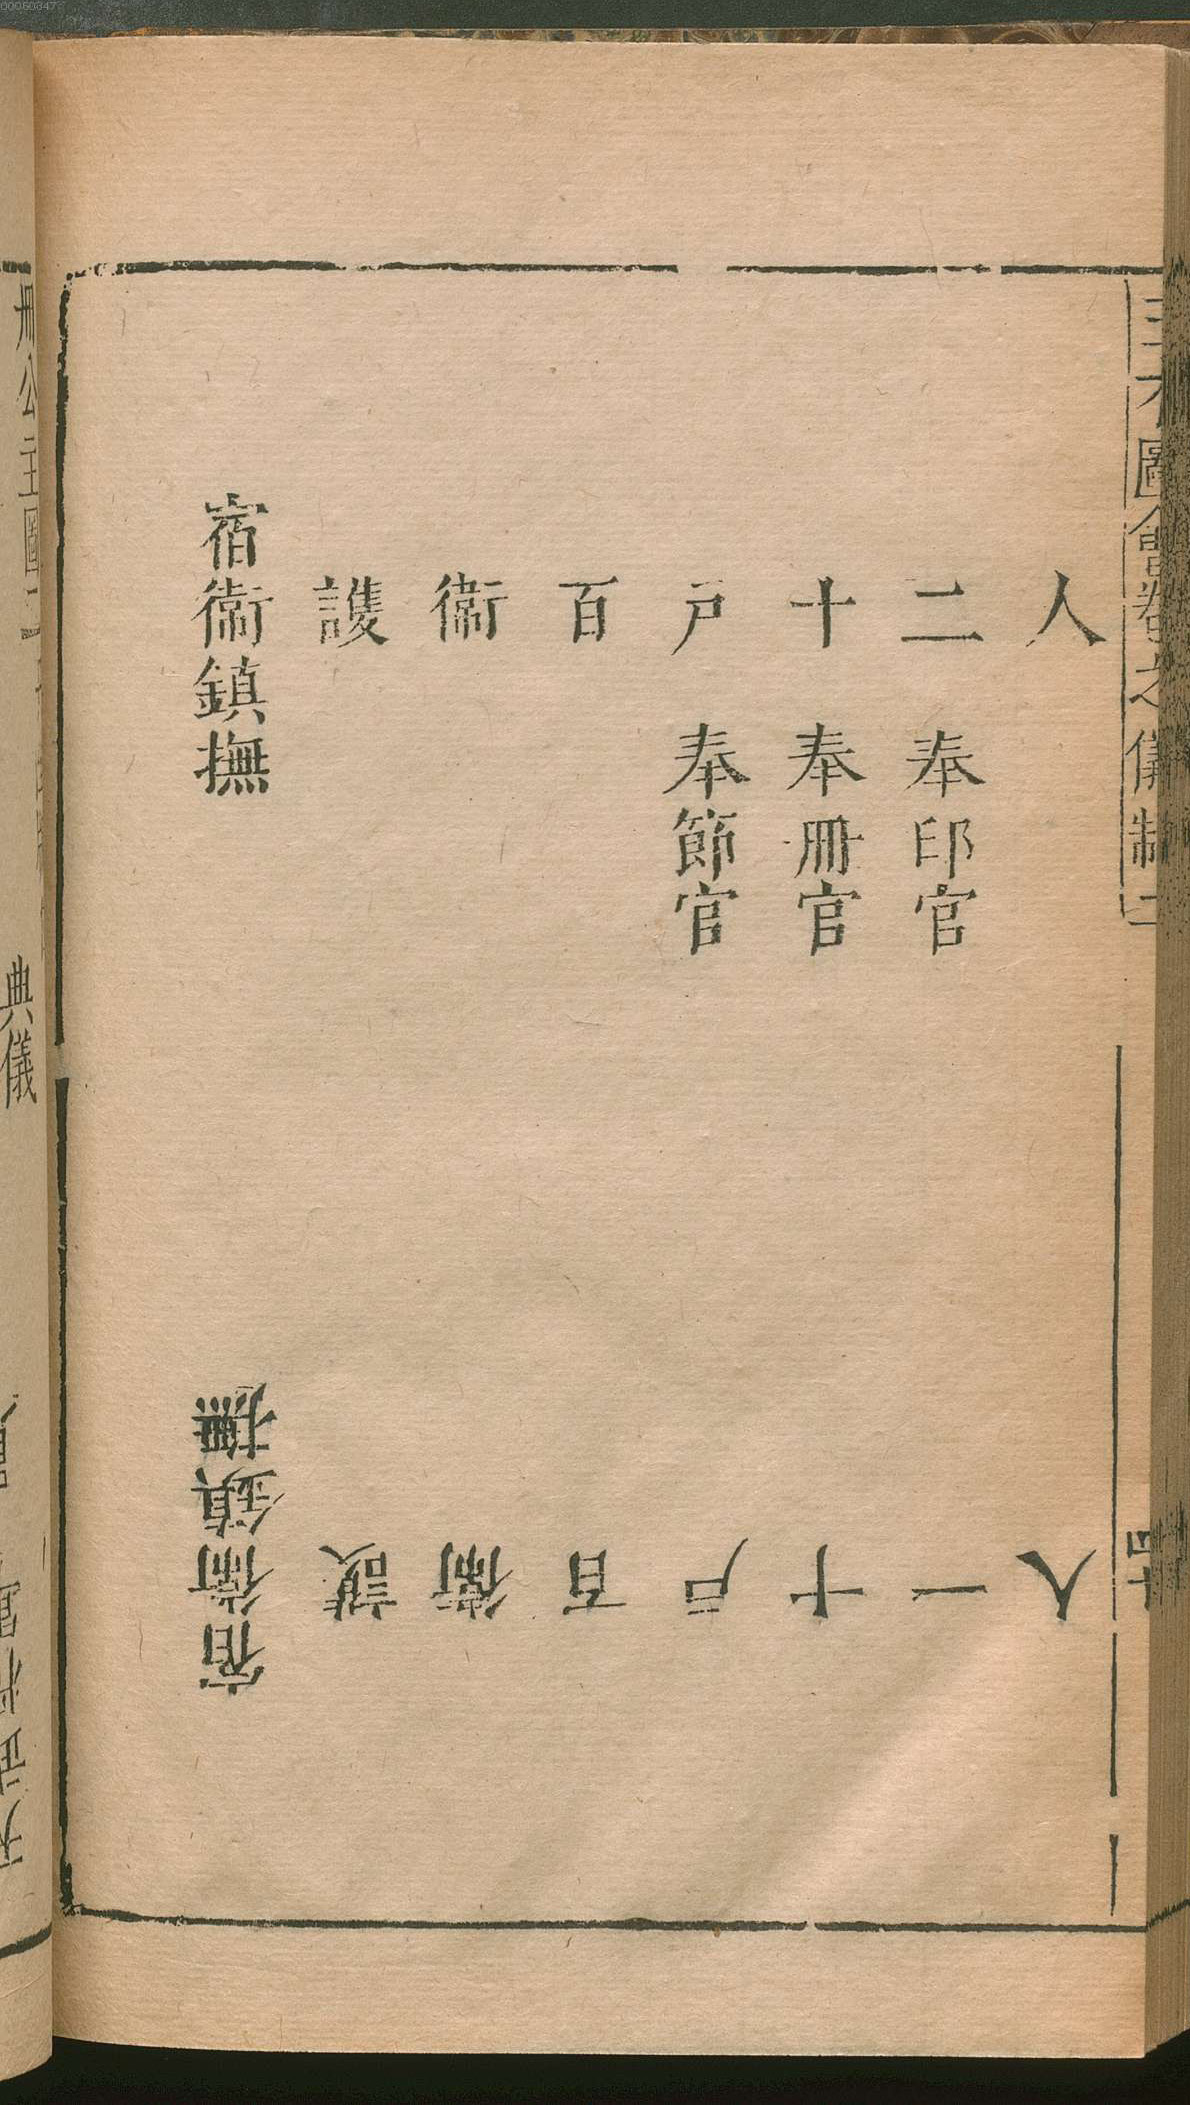 三才圖會卷之儀制二
四十
護衛百戶十二人
奉印官
奉冊官
奉節官
宿衛鎮撫
護衛百戶十一人
宿衛鎮撫
冊公主圖二
典儀